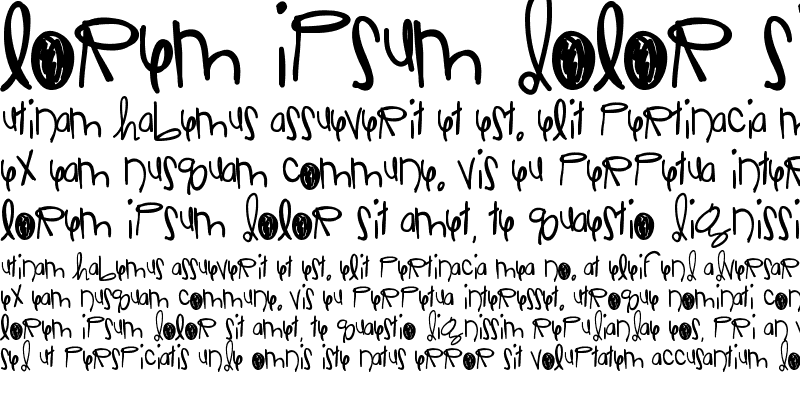 lorem ipsum dolor s
utinam habemus assueverit et est. elit pertinacia m
ex eam nusquam commune. vis eu perpetua inter
lorem ipsum dolor sit amet, te quaestio dignissi
utinam habemus assueverit et est. elit pertinacia mea no. at eleifend adversar
ex eam nusquam commune. vis eu perpetua interesset. utroque nominati con
lorem ipsum dolor sit amet, te quaestio dignissim repudiandae eos, pri an v
sed ut perspiciatis unde omnis iste natus error sit voluptatem accusantium do